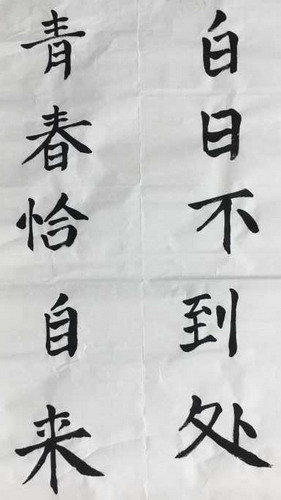 白日不到处
青春恰自来